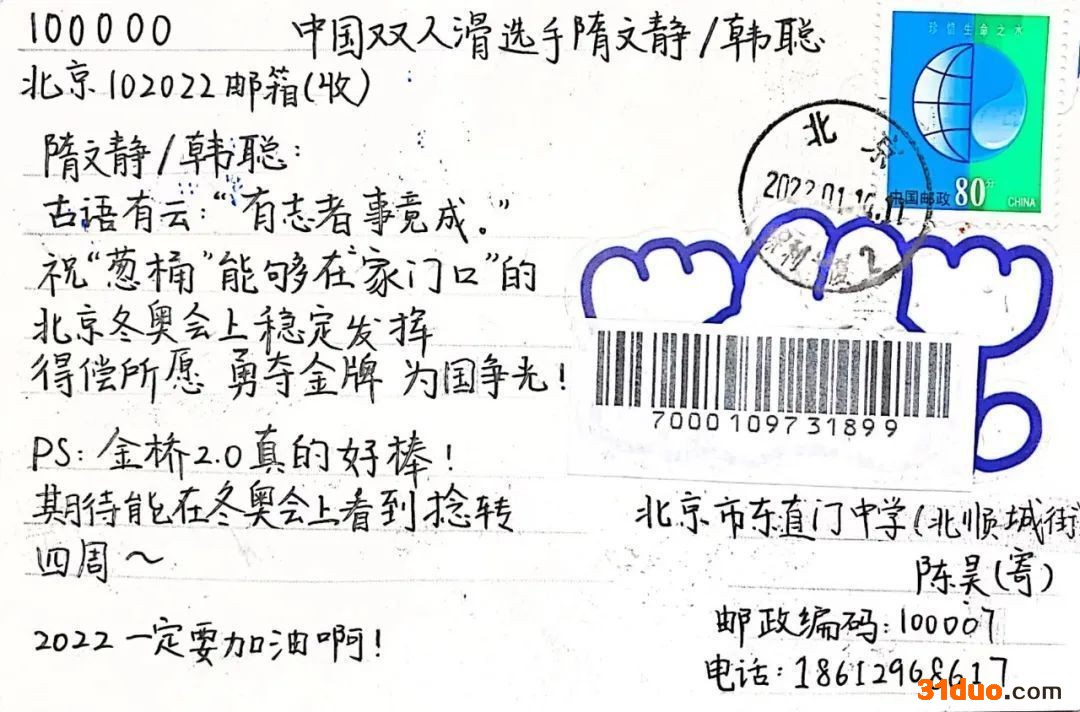 100000
中国双人滑选手隋文静/韩聪
北京102022邮箱(收)
隋文静/韩聪:
古语有云:“有志者事竟成。”
祝“葱桶”能够在“家门口”的
北京冬奥会上稳定发挥
得偿所愿 勇夺金牌 为国争光!
PS:金桥2.0真的好棒!
期待能在冬奥会上看到捻转
四周~
2022一定要加油啊!
珍惜生命之水
中国邮政 80分 CHINA
北京
2022.01.1
2
7000109731899
北京市东直门中学(北顺城街
陈昊(寄)
邮政编码:100007
电话:18612968617
31duo.com